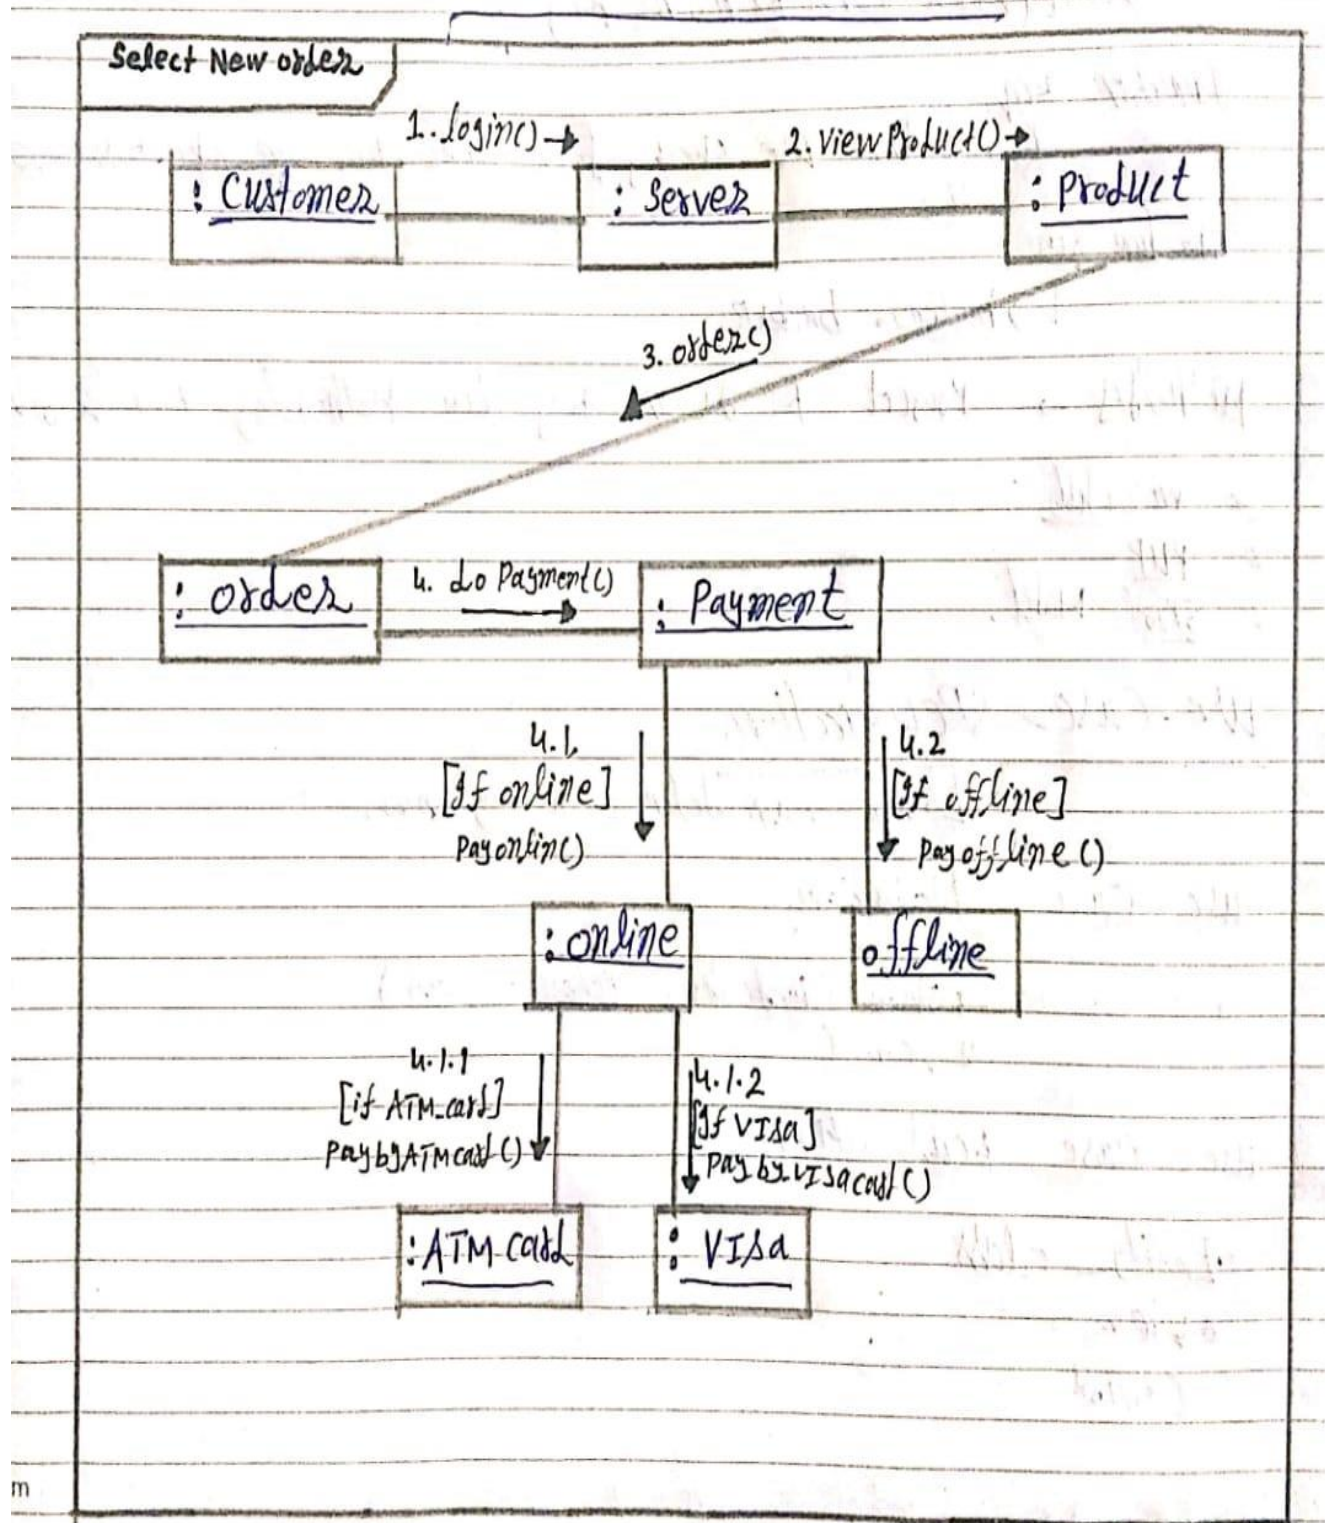 Select New order
1. login()
2. viewProduct()
: Customer
: Server
: Product
3. order()
: order
4. do Payment()
: Payment
4.1
[If online]
Payonlin()
4.2
[If offline]
Payoffline()
: online
offline
4.1.1
[if ATM_card]
PaybyATMcard()
4.1.2
[If VISa]
Pay by_VISacard()
: ATM card
: VISa
m